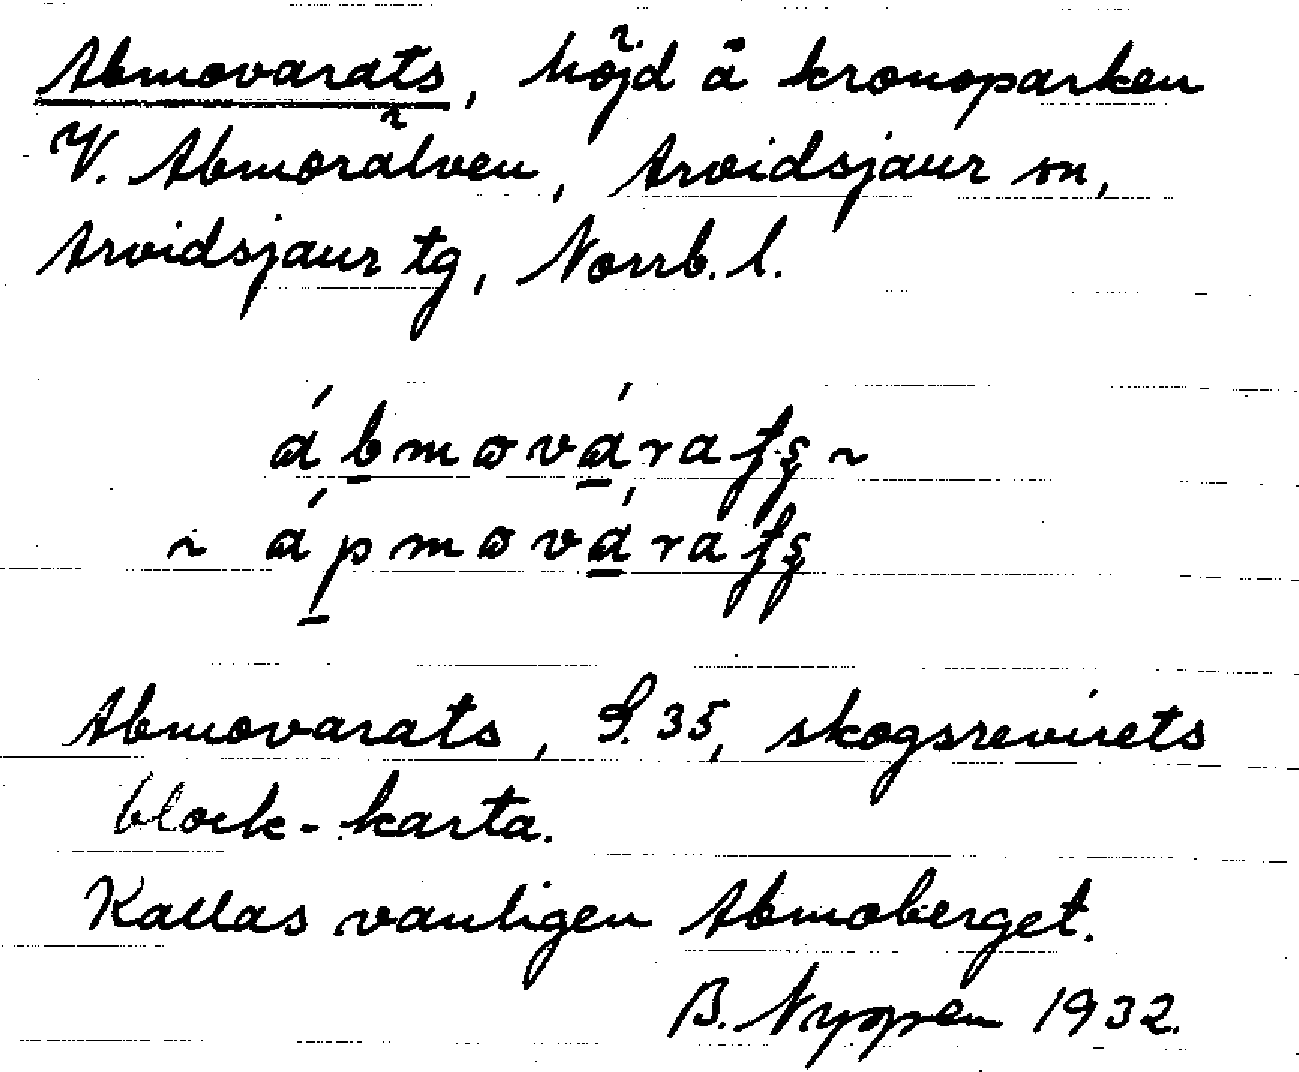 Abmovarats, höjd å kronoparken
V. Abmorälven, Arvidsjaur sn,
Arvidsjaur tg, Norrb. l.
ábmovárats ~
~ ápmovárats
Abmovarats, S. 35, skogsrevirets
block-karta.
Kallas vanligen Abmoberget.
B. Nyppen 1932.